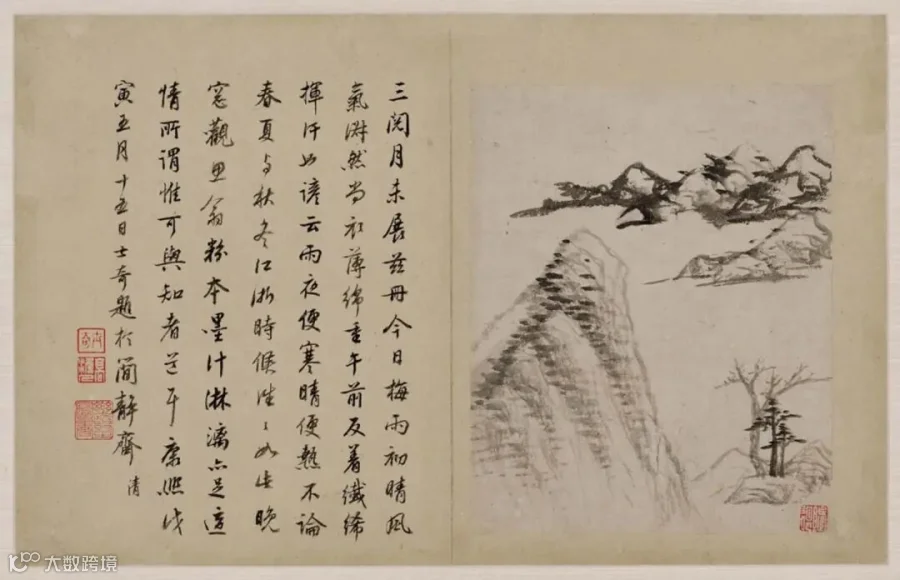 三閱月未展茲冊今日梅雨初晴風
氣然尚衣薄綿重午前反着纖絺
揮汗諺云雨夜便寒晴便熱不論
春夏与秋冬江浙時候往〻如此晚
窓觀思翁粉本墨汁淋漓亦足適
情所謂惟可與知者道耳康熙戊
寅五月十五日士奇題於簡靜齋
清
大数跨境